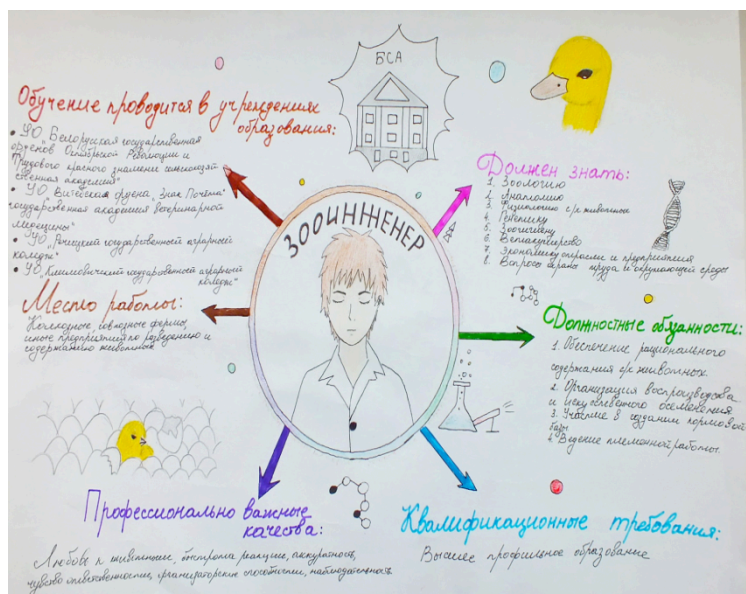 БСА
Обучение проводится в учреждениях
образования:
• УО „Белорусская государственная
орденов Октябрьской Революции и
Трудового красного знамени сельскохозяй
ственная академия"
• УО Витебская ордена „Знак Почёта"
государственная академия ветеринарной
медицины"
• УО „Речицкий государственный аграрный
колледж"
• УО „Климовичский государственный аграрный
колледж"
Место работы:
Колхозные, совхозные фермы,
иные предприятия по разведению и
содержанию животных
ЗООИНЖЕНЕР
Должен знать:
1. Зоологию
2. Анатомию
3. Физиологию с/х животных
4. Генетику
5. Зоогигиену
6. Ветакушерство
7. Экономику отрасли и предприятия
8. Вопросы охраны труда и окружающей среды
Должностные обязанности:
1. Обеспечение рационального
содержания с/х животных.
2. Организация воспроизводства
и искусственного осеменения
3. Участие в создании кормовой
базы
4. Ведение племенной работы.
Профессионально важные
качества:
Любовь к животным, быстрота реакции, аккуратность,
чувство ответственности, организаторские способности, наблюдательность
Квалификационные требования:
Высшее профильное образование